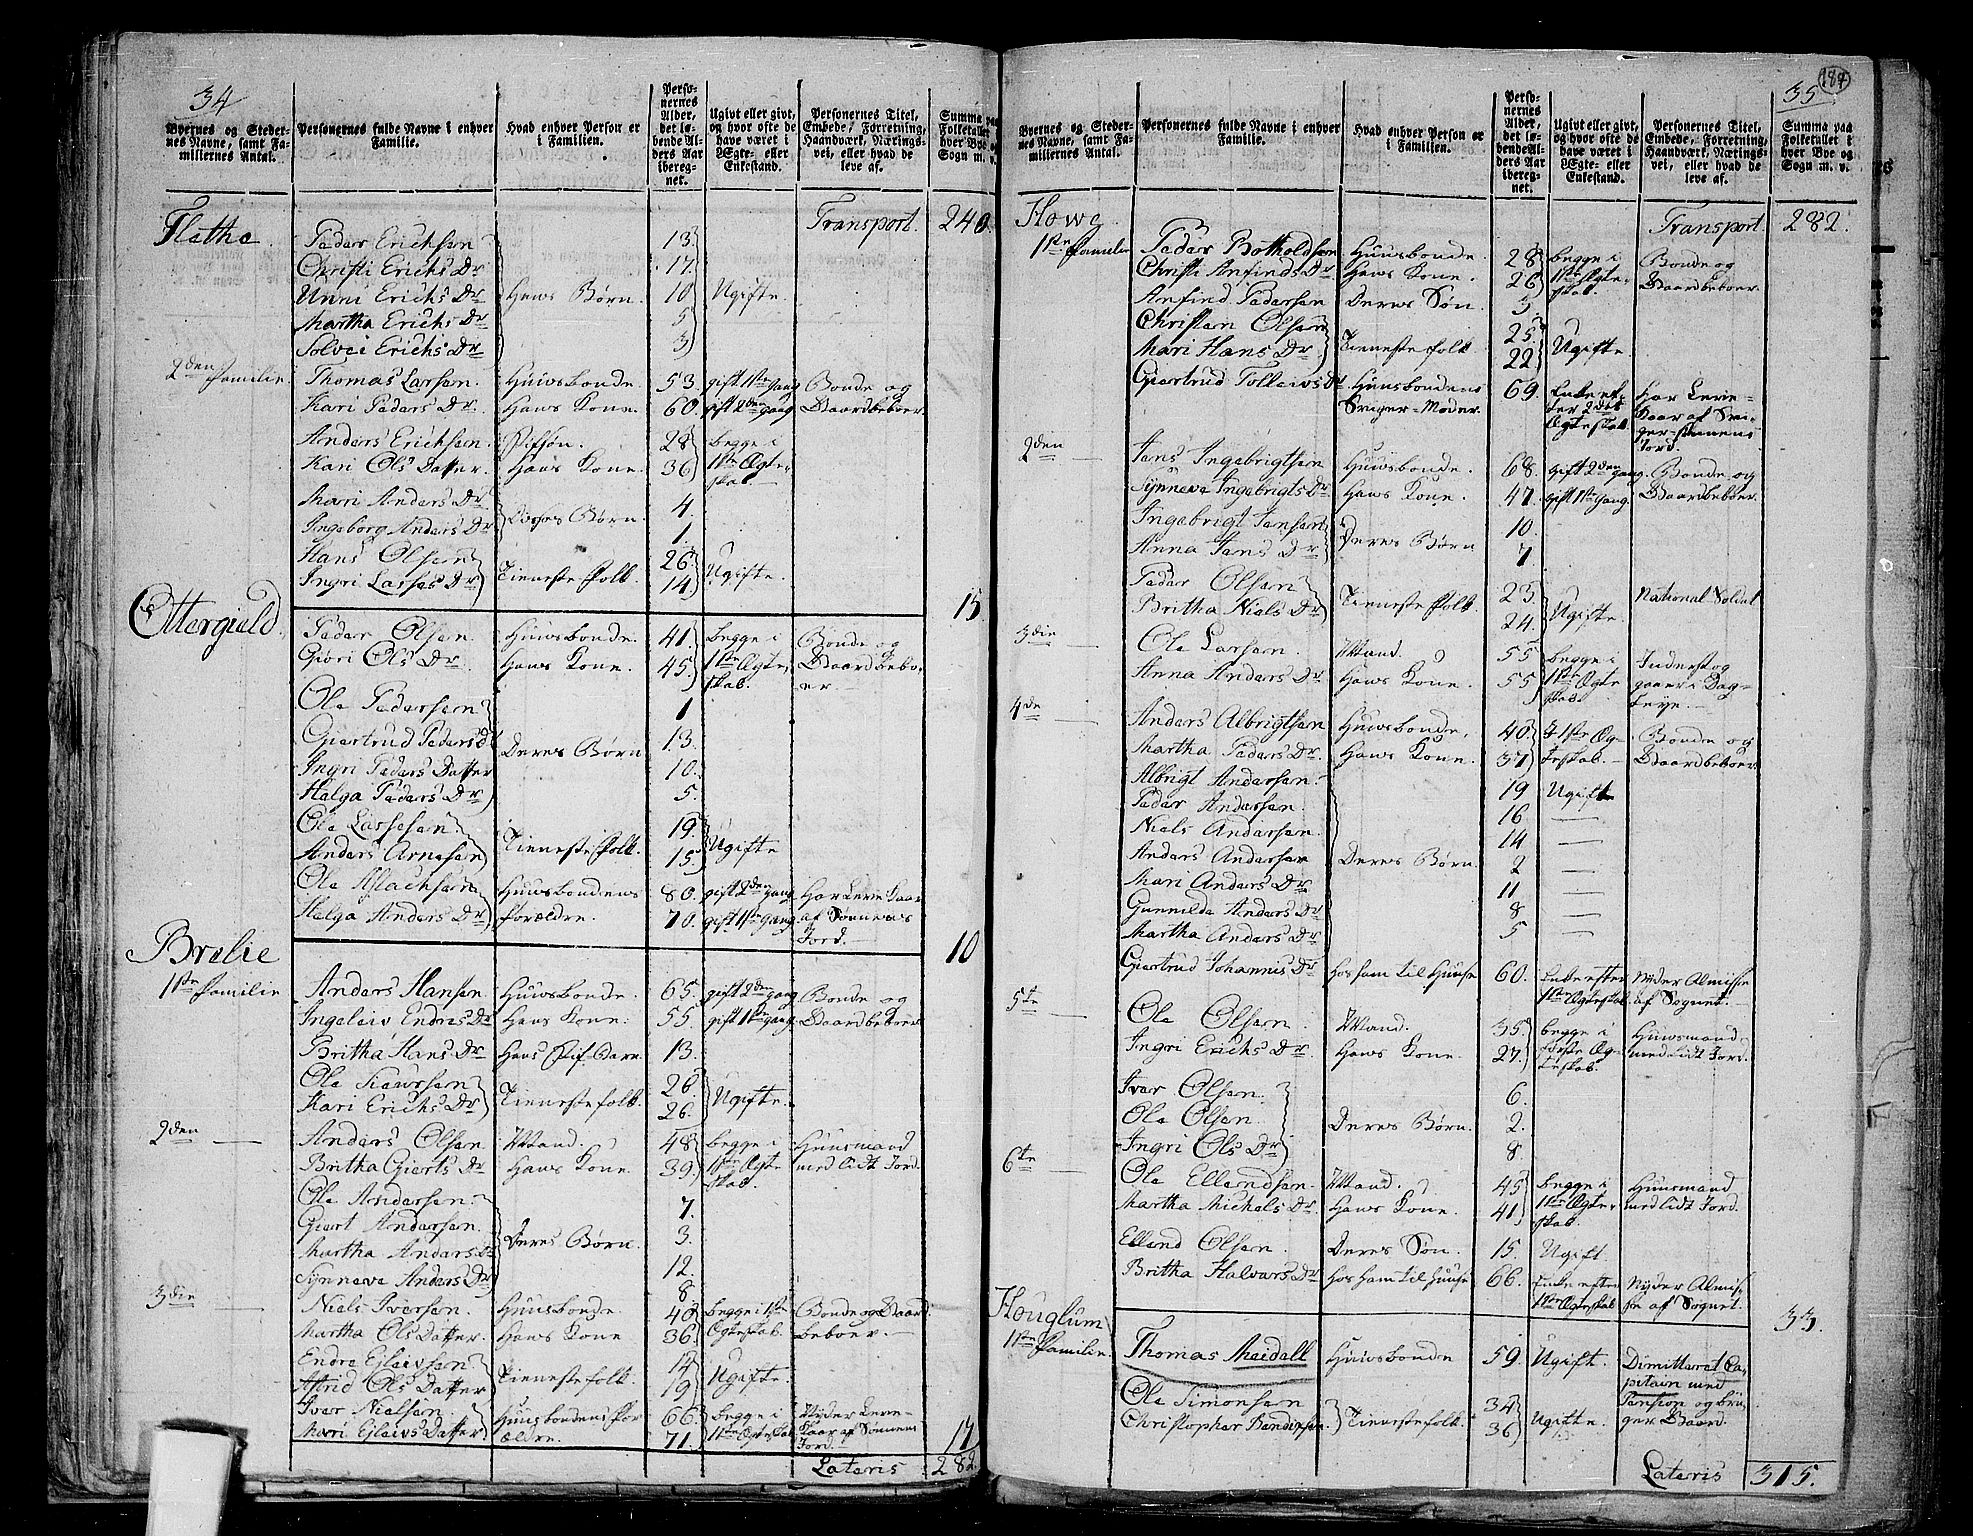 34
Byernes og Stedernes Navne, samt Familiernes Antal. | Personernes fulde Navne i enhver Familie. | Hvad enhver Person er i Familien. | Personernes Alder, det løbende Alders Aar iberegnet. | Ugivt eller givt, og hvor ofte de have været i Ægte- eller Enkestand. | Personernes Titel, Embede, Forretning, Haandværk, Næringsvei, eller hvad de leve af. | Summa paa Folketallet i hver Bye og Sogn m. v.
Transport. 240.
Flathe. Peder Erichsen 13.
Christi Erichs Dr 17.
Unni Erichs Dr Hans Børn. 10 Ugifte.
Martha Erichs Dr 5
Solvei Erichs Dr 3
2den Familie. Thomas Larsen. Huusbonde 53. gift 1ste gang Bonde og
Kari Peders Dr. Hans Kone. 60. gift 2den gang Gaardbeboer.
Anders Erichsen. Stifsøn. 28 begge i
Kari Ols Datter. Hans Kone. 36 1ste Ægte-
skab.
Mari Anders Dr 4.
Ingeborg Anders Dr Deres Børn. 1.
Hans Olsen 26.
Ingri Lasses Dr Tienestefolk. 14. Ugifte.
15.
Ottergield. Peder Olsen. Huusbonde. 41. begge i Bonde og
Giøri Ols Dr. Hans Kone. 45. 1ste Ægte- Gaardbebo-
skab. er.
Ole Pedersen 1
Giertrud Peders Dr 13.
Ingri Peders Datter Deres Børn 10.
Helga Peders Dr 5.
Ole Lassesen. 19.
Anders Arnesen Tienestefolk. 15. Ugifte
Ole Aslachsen Huusbondens 80. gift 2den gang Har Leve Kaar
Helga Anders Dr Forældre. 70. gift 1ste gang af Sønnens
Jord.
10
Brelie
1ste Familie Anders Hansen Huusbonde. 65. gift 2den gang Bonde og
Ingeleiv Endres Dr Hans Kone. 55. gift 1ste gang. Gaardbeboer
Britha Hans Dr Hans Stif-Barn. 13.
Ole Siursen 26.
Kari Erichs Dr Tienestefolk. 26. Ugifte.
2den Anders Olsen Mand. 48 begge i Huusmand
Britha Gierts Dr Hans Kone. 39. 1ste Ægte med lidt Jord.
skab.
Ole Andersen. 7.
Giert Andersen. 3.
Martha Anders Dr Deres Børn. 12.
Synneve Anders Dr 8
3die Niels Iversen. Huusbonde. 40 begge i 1ste Bonde og Gaard-
Martha Ols Datter. Hans Kone 36. Ægteskab. beboer.
Endre Ejleivsen. 14
Astrid Ols Datter Tienestefolk. 19 Ugifte.
Iver Nielsen. Huusbondens For- 66. begge i Nyder Leve-
Mari Ejleivs Datter ældre. 71. 1ste Ægteskab Kaar af Sønnens
Jord. 17
Lateris 282.
184
35
Byernes og Stedernes Navne, samt Familiernes Antal. | Personernes fulde Navne i enhver Familie. | Hvad enhver Person er i Familien. | Personernes Alder, det løbende Alders Aar iberegnet. | Ugivt eller givt, og hvor ofte de have været i Ægte- eller Enkestand. | Personernes Titel, Embede, Forretning, Haandværk, Næringsvei, eller hvad de leve af. | Summa paa Folketallet i hver Bye og Sogn m. v.
Howe Transport. 282.
1ste Familie Peder Botholdsen Huusbonde. 28 begge i Bonde og
Christi Anfinds Dr Hans Kone. 26 1ste Ægte- Gaardbeboer.
skab.
Anfind Pedersen Deres Søn 3.
Christen Olsen 25.
Mari Hans Dr Tienestefolk 22 Ugifte
Giertrud Tolleivs Dr Huusbondens 69. Enke ef- Har Leve-
Sviger-Moder. ter 2det Kaar af Svi-
Ægteskab ger-Sønnens
Jord.
2den Jens Ingebrigtsen Huusbonde. 68. gift 2den gang. Bonde og
Synneve Ingebrigts Dr. Hans Kone. 47. gift 1ste gang. Gaardbeboer.
Ingebrigt Jensen 10.
Anna Jens Dr Deres Børn 7
Peder Olsen 23. National Soldat
Britha Niels Dr Tienestefolk 24. Ugifte.
3die Ole Larsen. Mand. 55 begge i Inderst og
Anna Anders Dr Hans Kone. 55 1ste Ægte gaaer i Dag-
skab. Leye.
4de Anders Albrigtsen Huusbonde. 40. I 1ste Æg- Bonde og
Martha Peders Dr. Hans Kone. 37 teskab. Gaardbeboer.
Albrigt Andersen. 19 Ugift
Peder Andersen. 16
Niels Andersen. 14
Anders Andersen Deres Børn 2
Mari Anders Dr 11
Gunnilde Anders Dr 8
Martha Anders Dr 5
Giertrud Johannis Dr Hos ham til Huuse 60. Enke efter Nyder Almisse
1ste Ægteskab af Sognet.
5te Ole Olsen. Mand. 35. begge i Huusmand
Ingri Erichs Dr. Hans Kone. 27. første Æg- med lidt Jord.
teskab.
Iver Olsen. 6.
Ole Olsen. Deres Børn. 2.
Ingri Ols Dr 8
6te Ole Ellendsen. Mand. 45 begge i Huusmand
Martha Michels Dr. Hans Kone. 41. 1ste Ægte- med lidt Jord.
skab.
Ellend Olsen. Deres Søn. 15. Ugift
Britha Halvors Dr Hos ham til Huuse 66. Enke efter Nyder Almis-
1ste Ægteskab se af Sognet.
33.
Houglum
1ste Familie. Thomas Meidell Huusbonde 59. Ugift. Dimitteret Ca-
pitain med
Ole Simonsen 34 Pension og bru-
Christopher Bendixsen. Tienestefolk 36 Ugifte. ger Gaard.
Lateris 315.